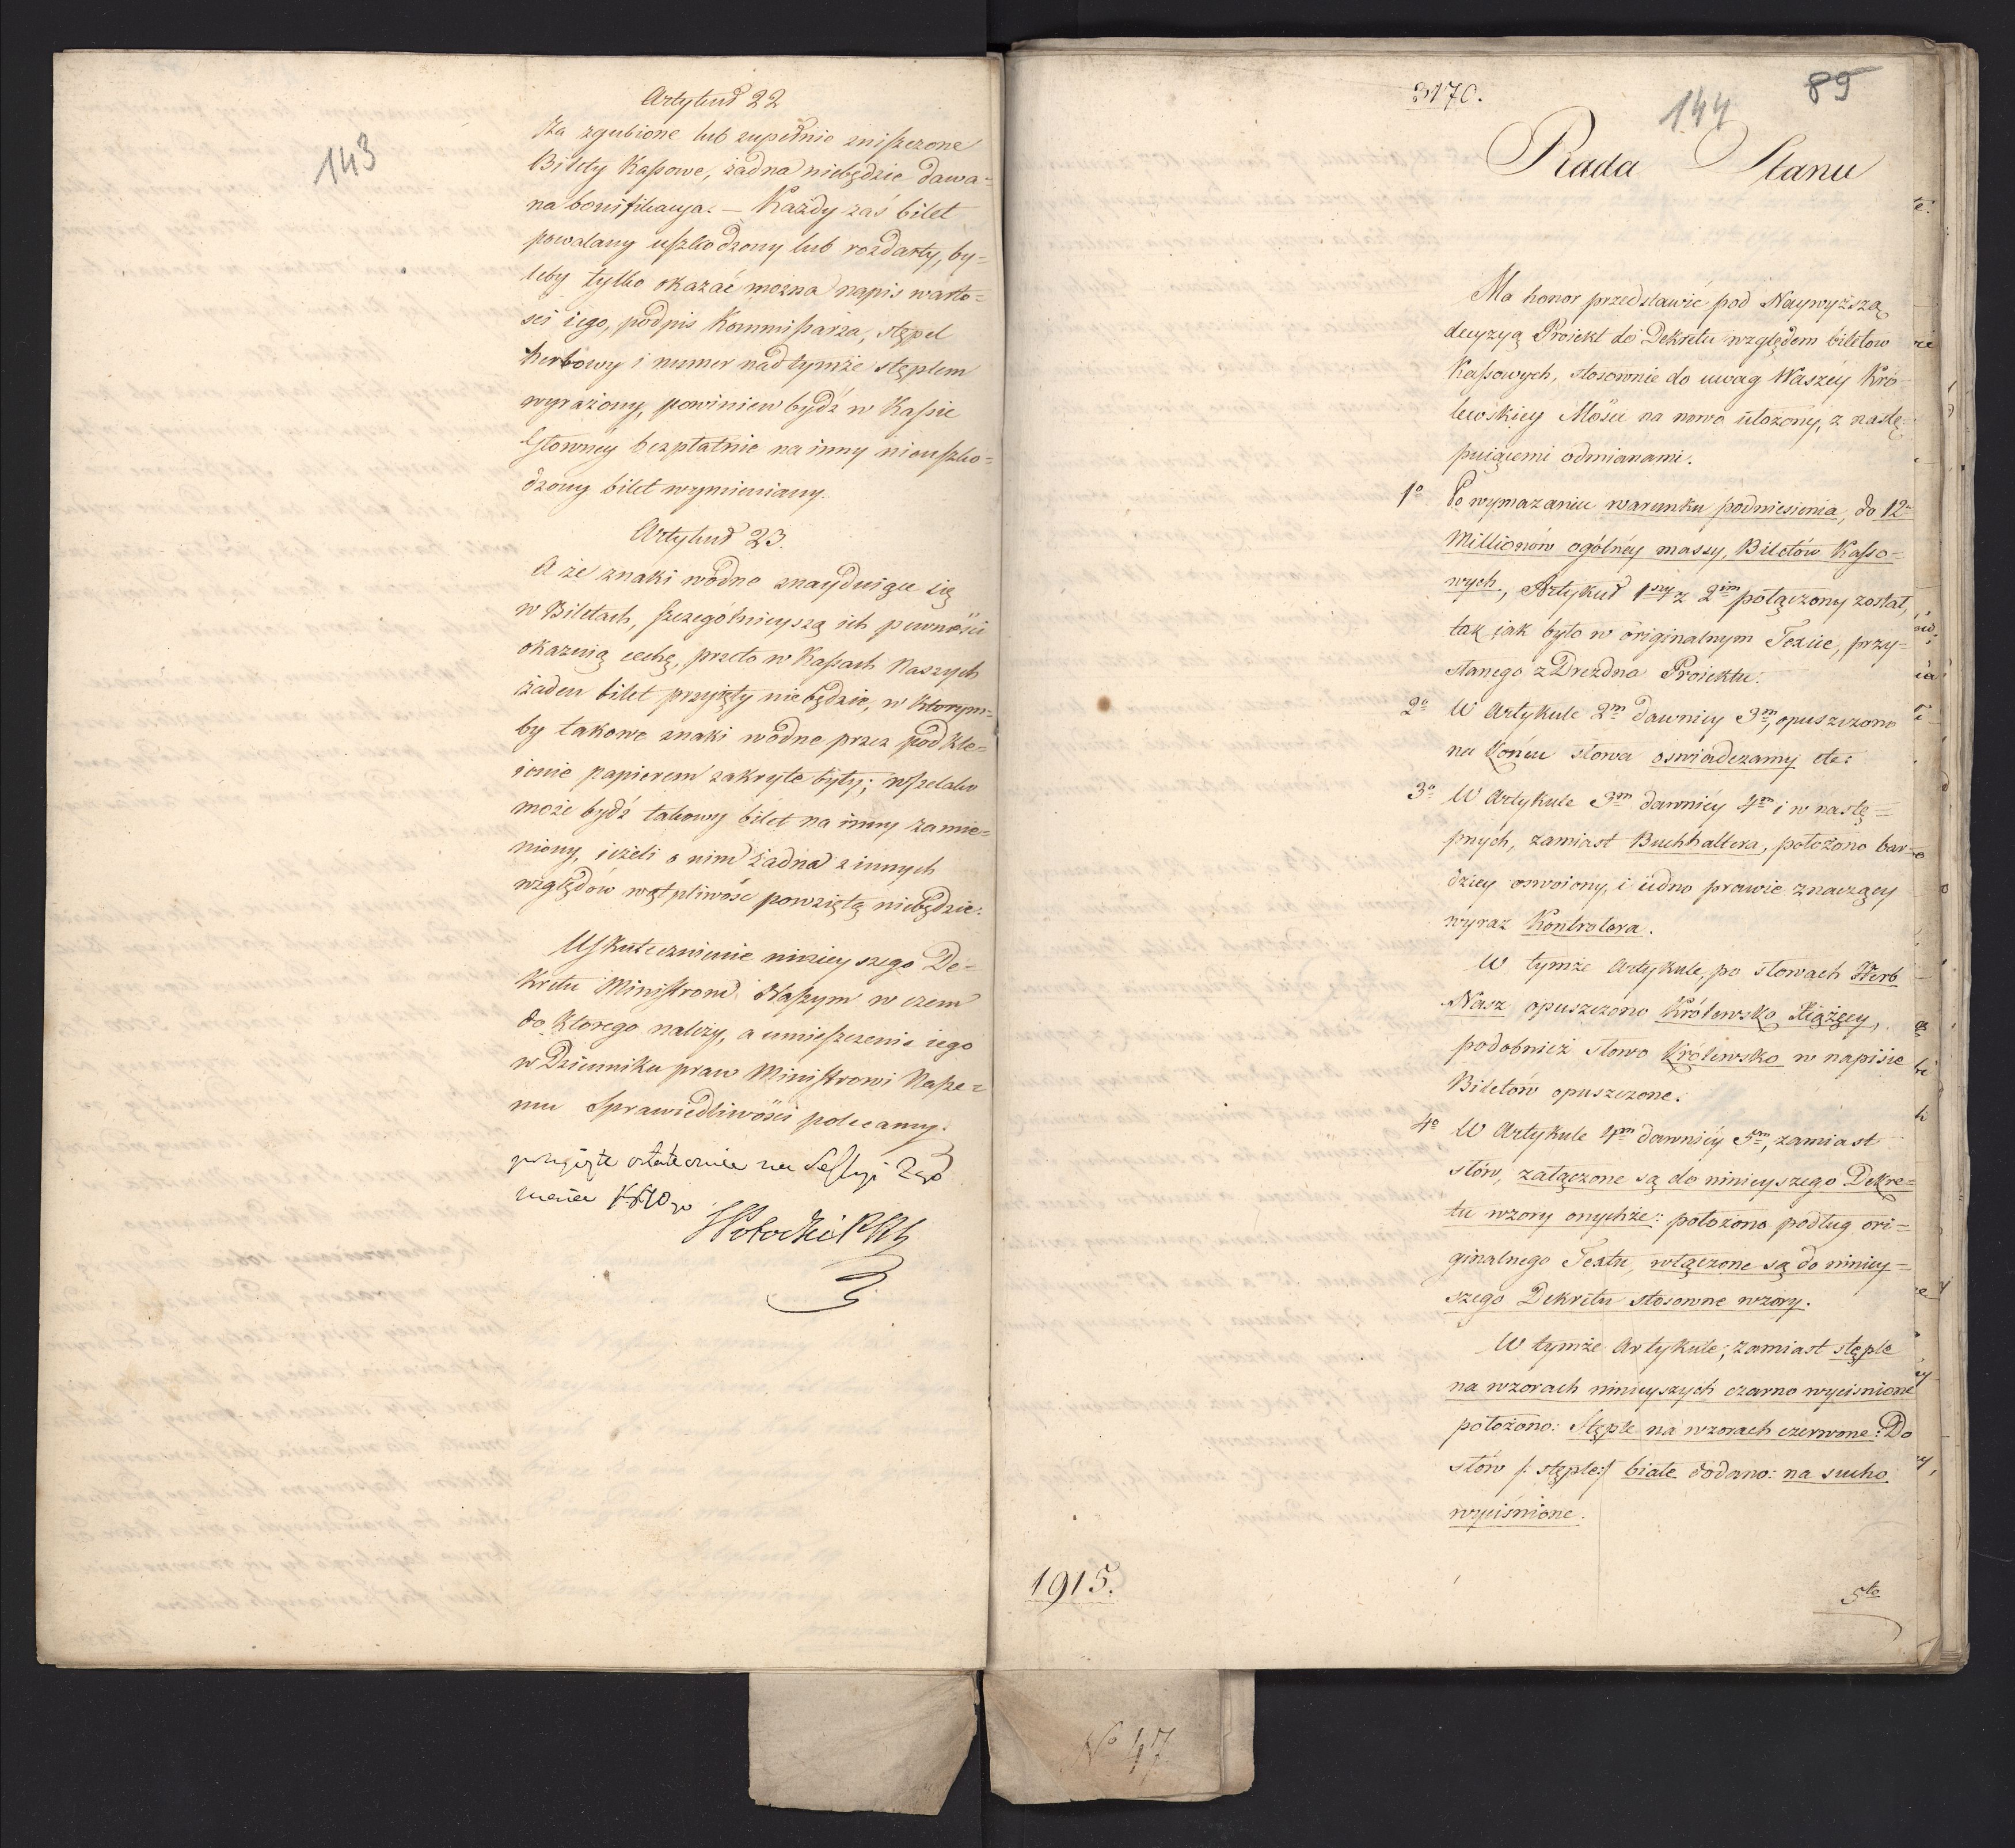 143
Artykuł 22
Za zgubione lub zupełnie zniszczone
Bilety Kassowe, żadna niebędzie dawa=
na bonifikacya. — Każdy zaś bilet
powalany uszkodzony lub rozdarty, by=
leby tylko okazać można napis warto=
ści iego, podpis Kommissarza, stępel
herbowy i numer nad tymże stęplem
wyrażony, powinien bydź w Kassie
Główney bezpłatnie na inny nieuszko=
dzony bilet wymieniany.
Artykuł 23.
A że znaki wodne znayduiące się
w Biletach, szczególnieyszą ich pewności
okazuią cechę, przeto w Kassach Naszych
żaden bilet przyięty nie będzie, w którym=
by takowe znaki wodne przez podkle=
ienie papierem zakryte były; wszelako
może bydź takowy bilet na inny zamie=
niony, ieżeli o nim żadna z innych
względów wątpliwość powziętą niebędzie.
Uskutecznienie ninieyszego De=
kretu Ministrom Naszym w czem
do którego należy, a umieszczenie iego
w Dzienniku praw Ministrowi Nasze=
mu Sprawiedliwości polecamy.
przyięte ostatecznie na Sessyi 2go
1810go
SPotocki
3170.
144
89
Rada Stanu
Ma honor przedstawić pod Naywyższą
decyzyą Proiekt do Dekretu względem biletow
Kassowych, stosownie do uwag Waszéy Kró=
lewskiey Mości na nowo ułożony, z nastę=
puiącemi odmianami.
1o Po wymazaniu warunku podniesienia, do 12=
Millionów ogólnéy massy, Biletów Kasso=
wych, Artykuł 1szy z 2im połączony został,
tak iak było w originalnym Texcie, przy=
słanego z Drezdna Proiektu.
2o W Artykule 2m dawniey 3m, opuszczono
na końcu słowa oswiadczamy etc:
3o W Artykule 3m dawniéy 4m i w nastę=
pnych, zamiast Buchhaltera, położono bar=
dziey oswoiony, i iedno prawie znaczący
wyraz Kontrolora.
W tymże Artykule, po słowach Herb
Nasz, opuszczono Królewsko Xiążęcy,
podobnież słowo Królewsko w napisie
Biletów opuszczone.
4o W Artykule 4m dawniéy 5m, zamiast
słów, załączone są do ninieyszego Dekre=
tu wzory onychże: położono podług ori=
ginalnego Textu, włączone są do niniey=
szego Dekretu stosowne wzory.
W tymże Artykule; zamiast stęple
na wzorach ninieyszych czarno wyciśnione
położono: Stęple na wzorach czerwone: Do
słów /: stęple:/ białe dodano: na sucho
wyciśnione.
1915.
5to
No 47